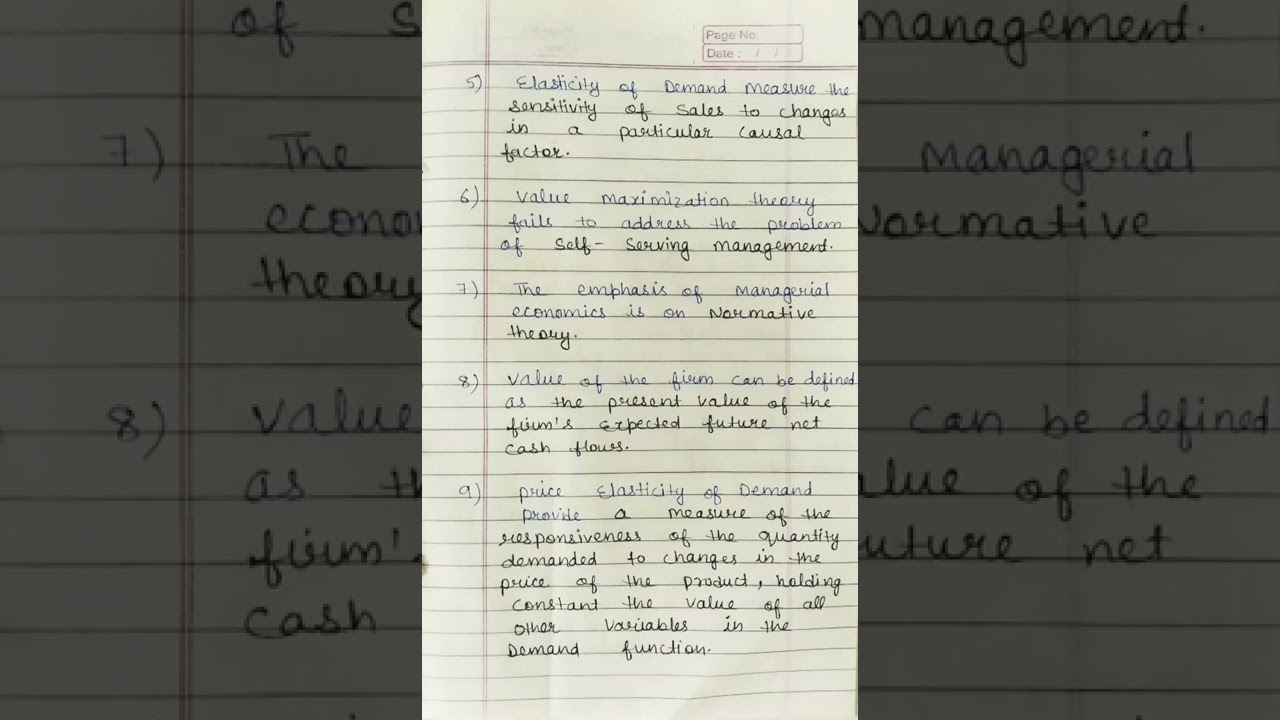 Page No.
Date : / /
5) Elasticity of Demand measure the
sensitivity of Sales to changes
in a particular causal
factor.
6) Value maximization theory
fails to address the problem
of Self- Serving management.
7) The emphasis of managerial
economics is on Normative
theory.
8) Value of the firm can be defined
as the present value of the
firm's expected future net
cash flows.
9) price Elasticity of Demand
provide a measure of the
responsiveness of the quantity
demanded to changes in the
price of the product, holding
constant the value of all
other variables in the
Demand function.